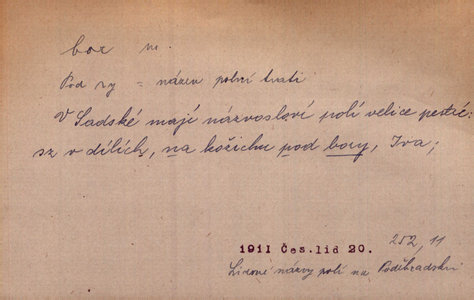 boz m.
Pod -zy = název polní trati
V Sadské mají názvosloví polí velice pestré:
sz v dílích, na kožichu pod bozy, Iva;
1911 Čes. lid 20. 252, 11
Lidové názvy polí na Poděbradsku